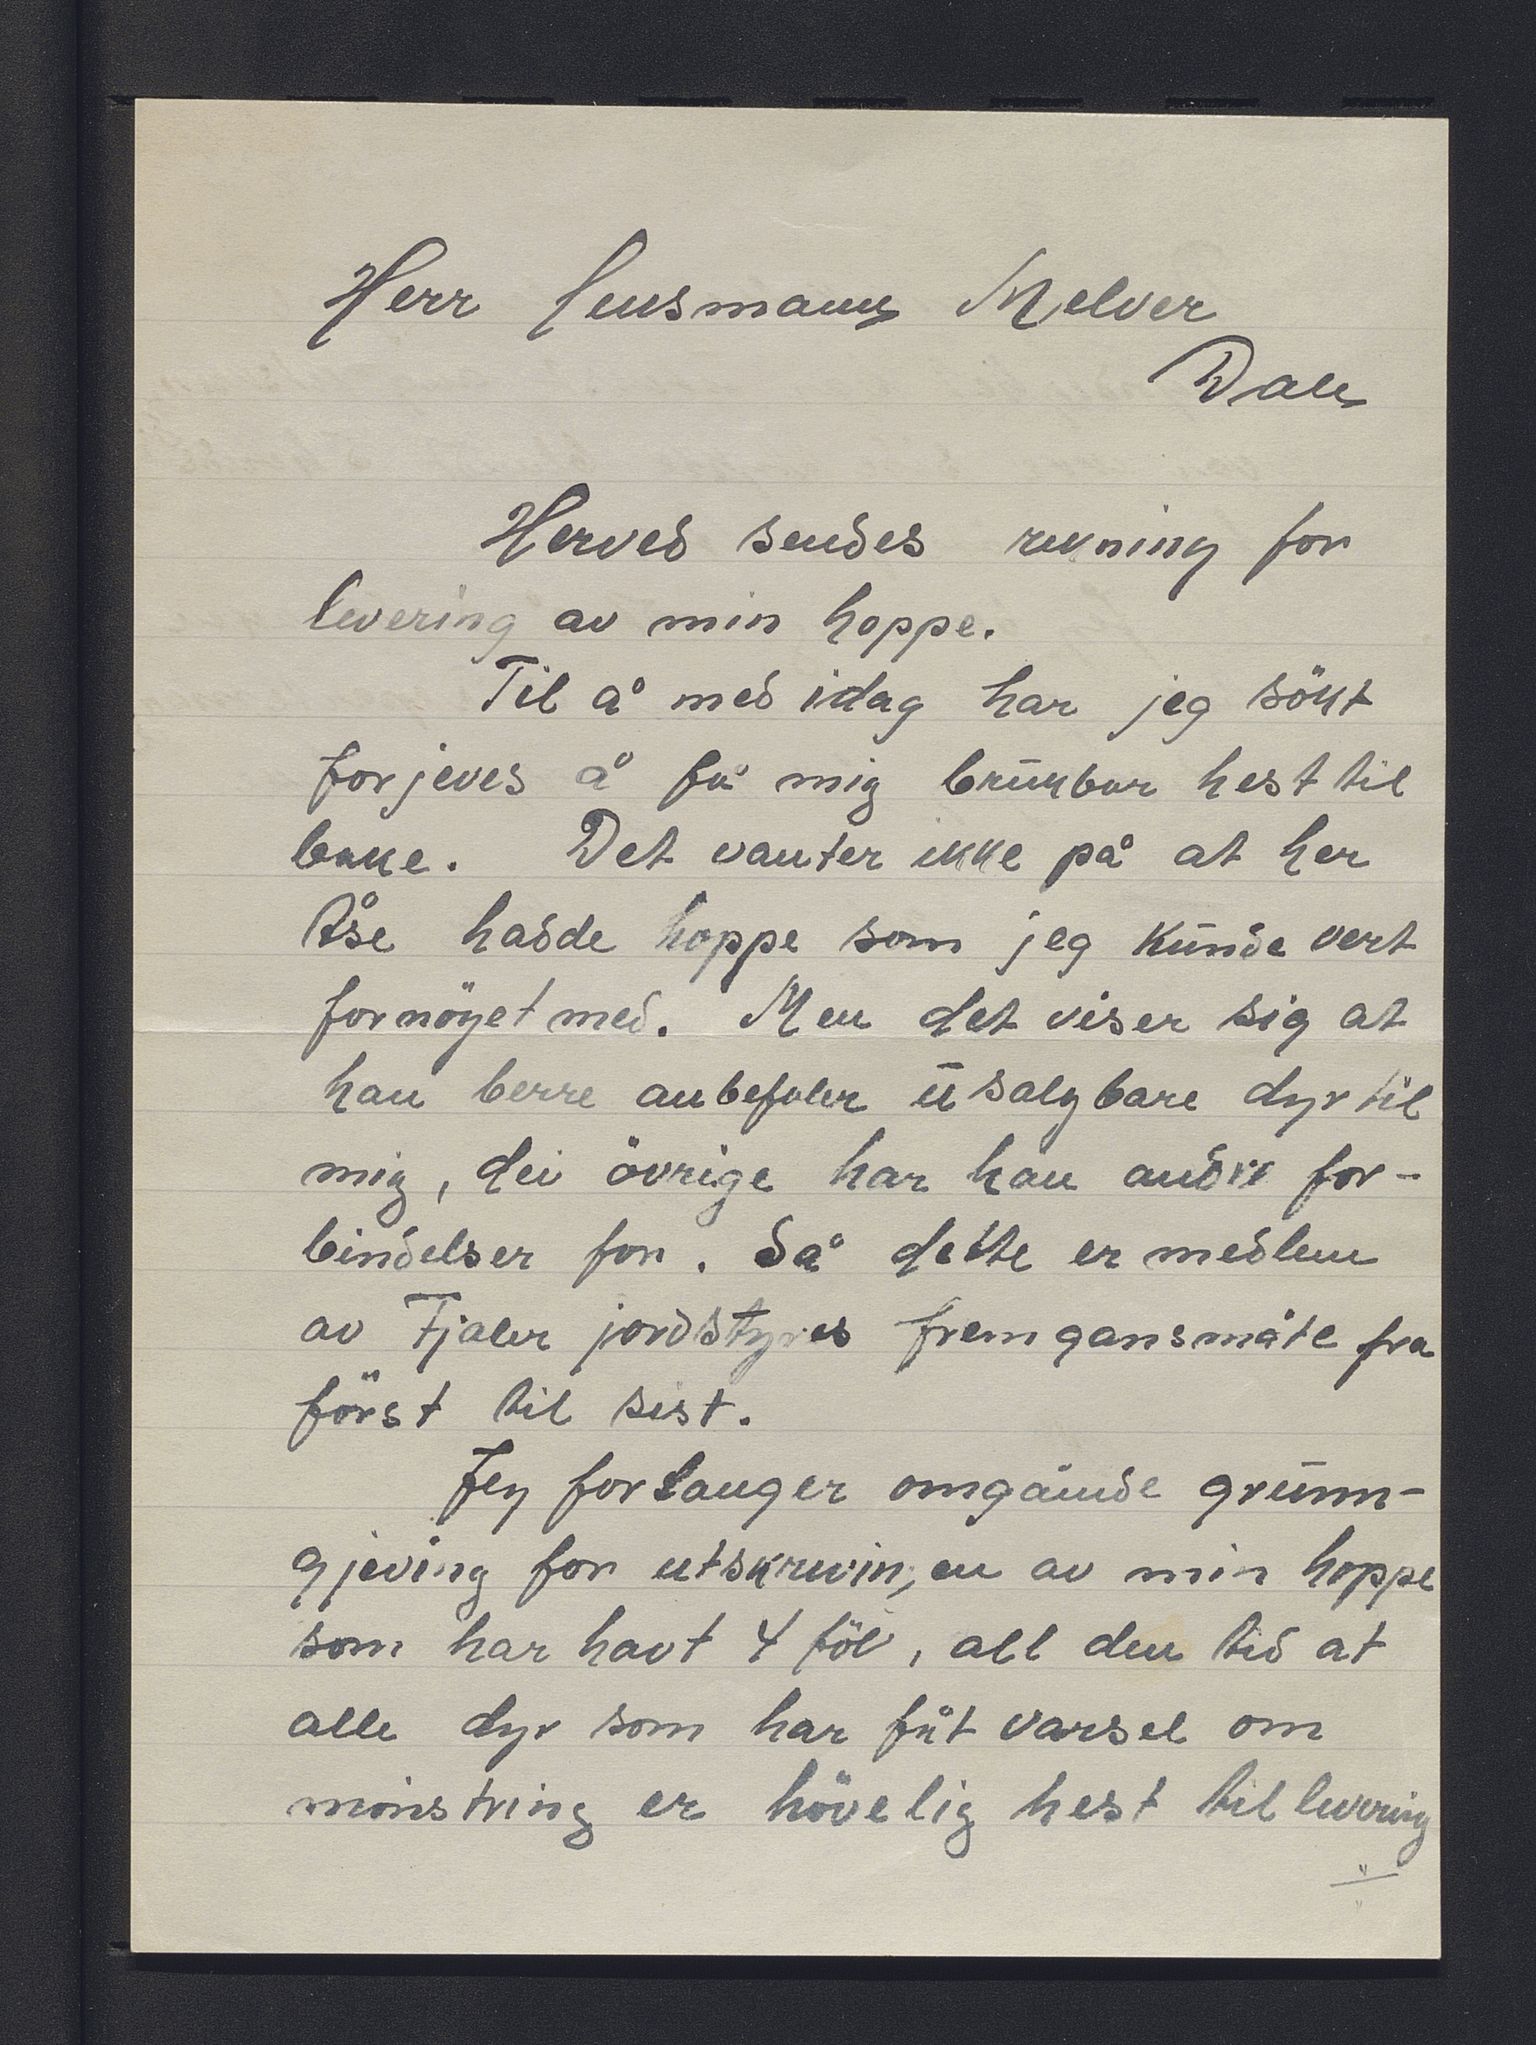 Herr lensmann Melver
Dale
Herved sendes rekning for
levering av min hoppe.
Til å med idag har jeg sökt
forjeves å få mig brukbar hest til
bake. Det vanter ikke på at her
Åse hadde hoppe som jeg kunde vert
fornöyet med. Men det viser sig at
han berre anbefaler usalgbare dyr til
mig, dei övrige har han andre for-
bindelser for. Så dette er medlem
av Fjaler jordstyres fremgansmåte fra
först til sist.
Jeg forlanger omgående grunn-
gjeving for utskrivingen av min hoppe
som har havt 4 föl, all den tid at
alle dyr som har fåt varsel om
mönstring er hövelig hest til levering